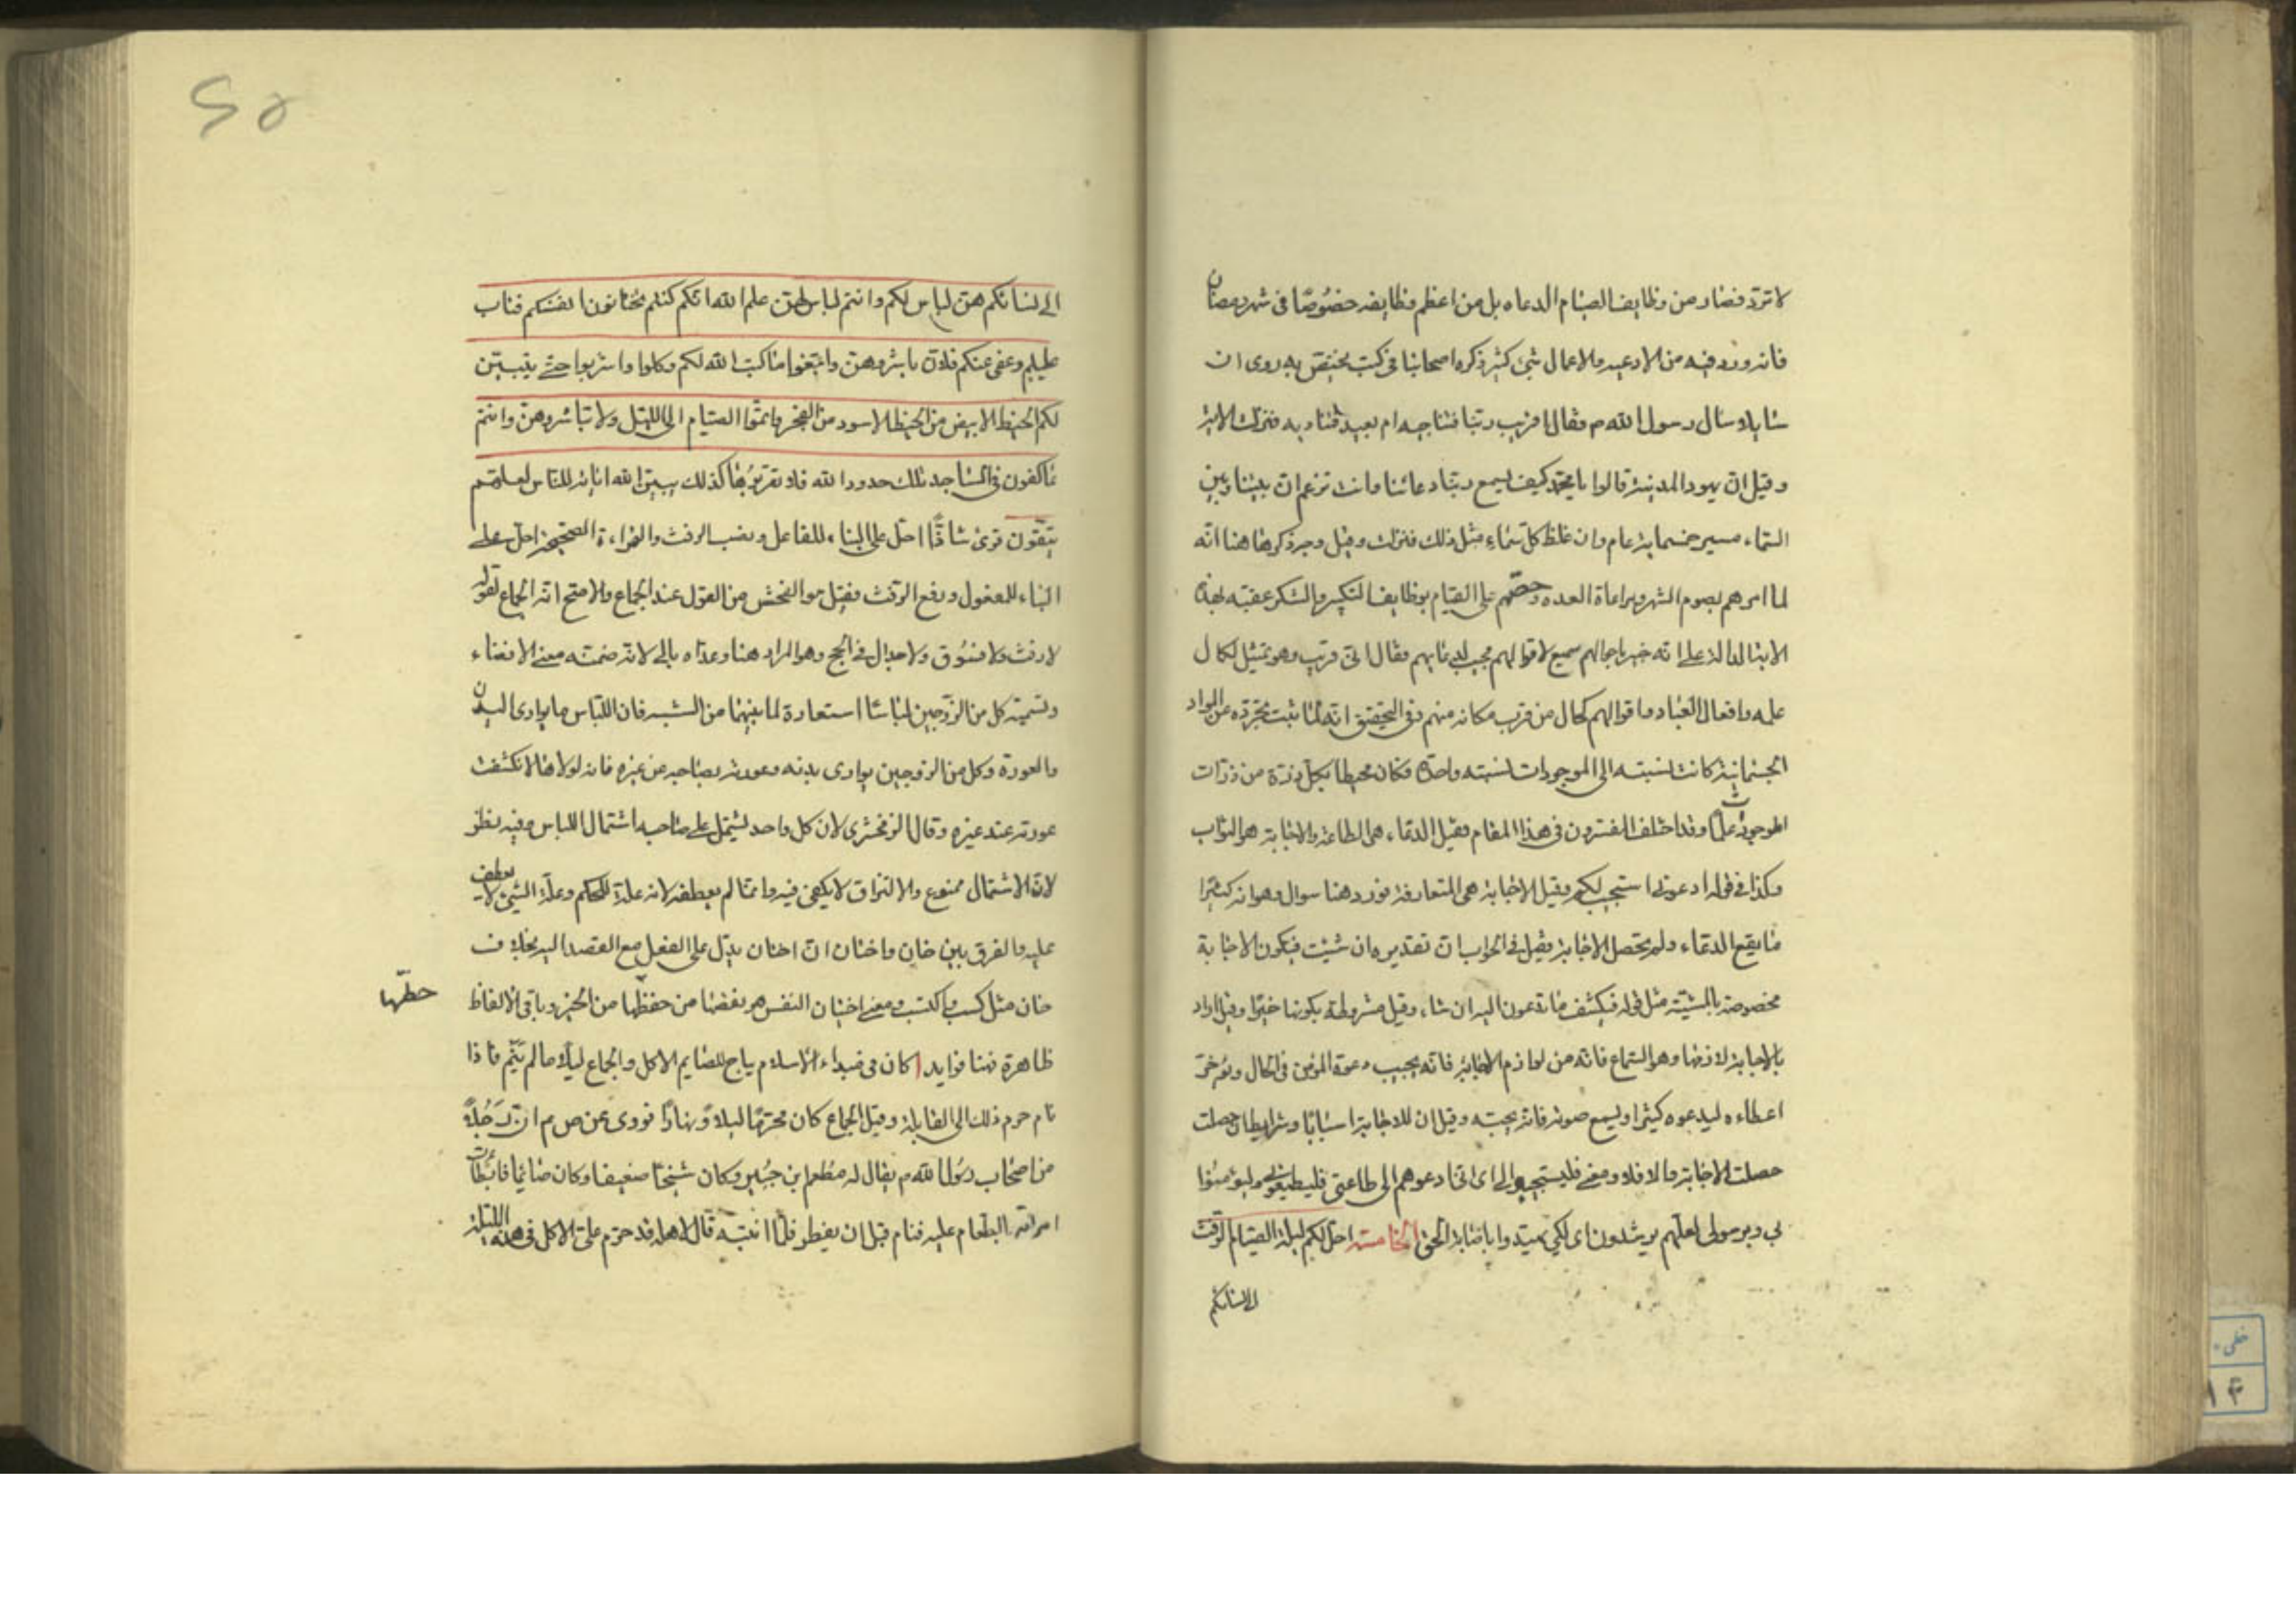 لا ترد فصار من وظايف الصيام الدعاء بل من اعظم وظايفه خصوصا فى شهر رمضان
فانه ورد فيه من الادعيه والاعمال شئ كثير ذكره اصحابنا فى كتب يختص به روى ان
سايلا سال رسول الله م فقال اقريب ربنا فنناجيه ام بعيد فنناديه فنزلت الاية
وقيل ان يهود المدينة قالوا يا محمد كيف يسمع ربنا دعائنا وانت تزعم ان بيننا وبين
السماء مسير خمسماية عام وان غلظ كل سماء مثل ذلك فنزلت وقيل وجه ذكرها هنا انه
لما امرهم بصوم الشهر ومراعاة العده وحضهم على القيام بوظايف التكبير والشكر عقبه بهذه
الاية الدالة على انه خبير باحوالهم سميع لاقوالهم مجيب لدعائهم فقال انى قريب وهو تمثيل لكمال
علمه وافعال العباد واقوالهم كحال من قرب مكانه منهم وفى التحقيق انه لما ثبت تجرده عن المواد
الجسمانية كانت نسبته الى الموجودات نسبته واحدة فكان محيطا بكل ذرة من ذرات
الموجودات علما وقد اختلف المفسرون فى هذا المقام فقيل الدعاء هى الطاعة والاجابة هو الثواب
وكذا فى قوله ادعونى استجب لكم وقيل الاجابة هى المتعارفة فورد هنا سوال وهو انه كثيرا
ما يقع الدعاء ولم تحصل الاجابة فقيل فى الجواب ان تقديره ان شئت فيكون الاجابة
مخصوصة بالمشية مثل قوله فيكشف ما تدعون اليه ان شاء وقيل مشروطة بكونها خيرا وقيل اراد
بالاجابة لازمها وهو السماع فانه من لوازم الاجابة فانه يجيب دعوة المؤمن فى الحال ويؤخر
اعطاءه ليدعوه كثيرا ويسمع صوته فانه يحبه وقيل ان للاجابة اسبابا وشرايط ان حصلت
حصلت الاجابة والا فلا ومعنى فليستجيبوا لى اى اذا دعوهم الى طاعتى فليطيعونى وليؤمنوا
بى وبرسولى لعلهم يرشدون اى لكى يهتدوا باصابة الحق الخامسة احل لكم ليلة الصيام الرفث
الى نسائكم
الى نسائكم هن لباس لكم وانتم لباس لهن علم الله انكم كنتم تختانون انفسكم فتاب
عليكم وعفى عنكم فالان باشروهن وابتغوا ما كتب الله لكم وكلوا واشربوا حتى يتبين
لكم الخيط الابيض من الخيط الاسود من الفجر واتموا الصيام الى الليل ولا تباشروهن وانتم
عاكفون فى المساجد تلك حدود الله فلا تقربوها كذلك يبين الله اياته للناس لعلهم
يتقون قرئ شاذا احل على البناء للفاعل ونصب الرفث والقراءة الصحيحة احل على
البناء للمفعول ورفع الرفث فقيل هو الفحش من القول عند الجماع والاصح انه الجماع لقوله
لا رفث ولا فسوق ولا جدال فى الحج وهو المراد هنا وعداه بالى لانه ضمنه معنى الافضاء
وتسمية كل من الزوجين لباسا استعارة لما بينهما من الشبه فان اللباس ما يوارى البدن
والعورة وكل من الزوجين يوارى بدنه وعورته بصاحبه عن غيره فانه لولاها لانكشفت
عورته عند غيره وقال الزمخشرى لان كل واحد يشتمل على صاحبه اشتمال اللباس وفيه نظر
لان الاشتمال ممنوع والالتزاق لا يكفى فيه وانما لم يعطفه لانه علة للحكم وعلة الشئ لا يعطف
عليه والفرق بين خان واختان ان اختان يدل على الفعل مع القصد اليه بخلاف
خان مثل كسب واكتسب ومعنى اختيان النفس هو نقصها من حفظها من الخير وباقى الالفاظ
حظها
ظاهرة وهنا فوايد ا كان فى مبداء الاسلام يباح للصايم الاكل والجماع ليلا ما لم ينم فاذا
نام حرم ذلك الى القابلة وقيل الجماع كان محرما ليلا ونهارا فروى عن ص م ان رجلا
من اصحاب رسول الله م يقال له مطعم ابن جبير وكان شيخا ضعيفا وكان صايما فابطأت
امراته بالطعام عليه فنام قبل ان يفطر فلما انتبه قال لاهله قد حرم على الاكل فى هذه الليلة